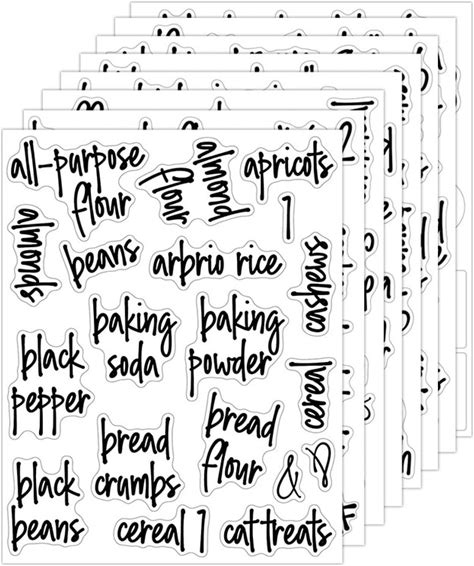 all-purpose
flour
almond
flour
apricots
1
almonds
beans
arbrio rice
cashews
baking
soda
baking
powder
black
pepper
cereal
bread
crumbs
bread
flour
&
black
beans
cereal 1
cat treats
2